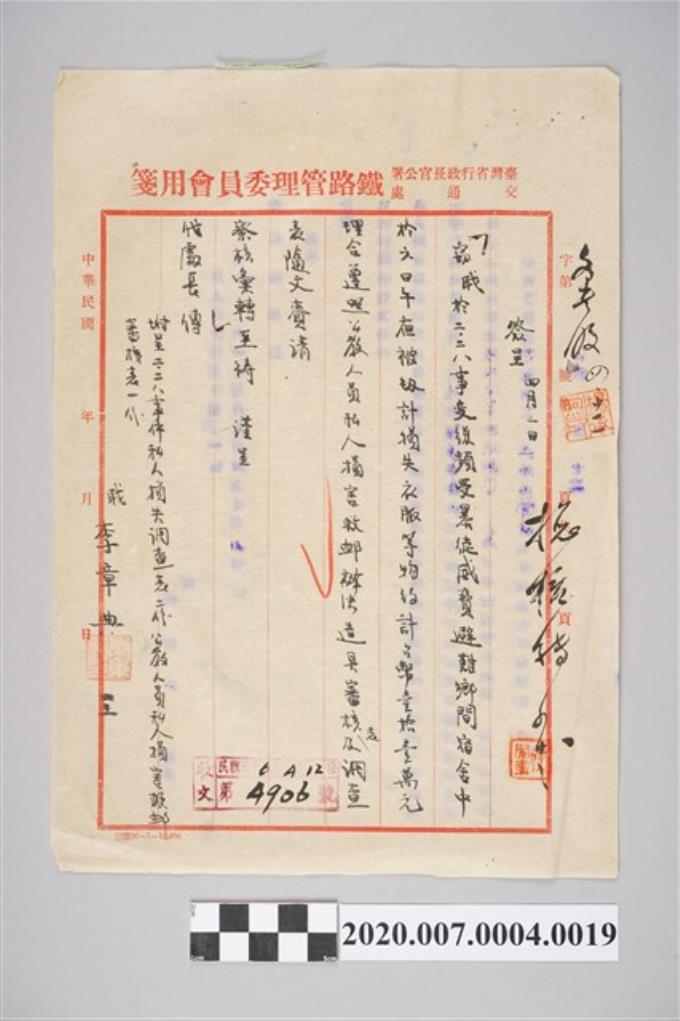 臺灣省行政長官公署
交通處
鐵路管理委員會用箋
字第 號第 頁 共 頁
簽呈 四月二日
竊職於二‧二八事變後頻受暴徒威脅避難鄉間宿舍中
於六日午夜被刼計損失衣服等物約計台幣壹拾壹萬元
理合遵照公教人員私人損害救卹辦法造具審核表及調查
表隨文賫請
察核彙轉至禱 謹呈
處長 傅
附呈二‧二八事件私人損失調查表二份公教人員私人損害救卹
審核表一份
職 李章典 呈
中華民國 年 月 日
收文 民國 6 4 12
第 4906 號
2020.007.0004.0019